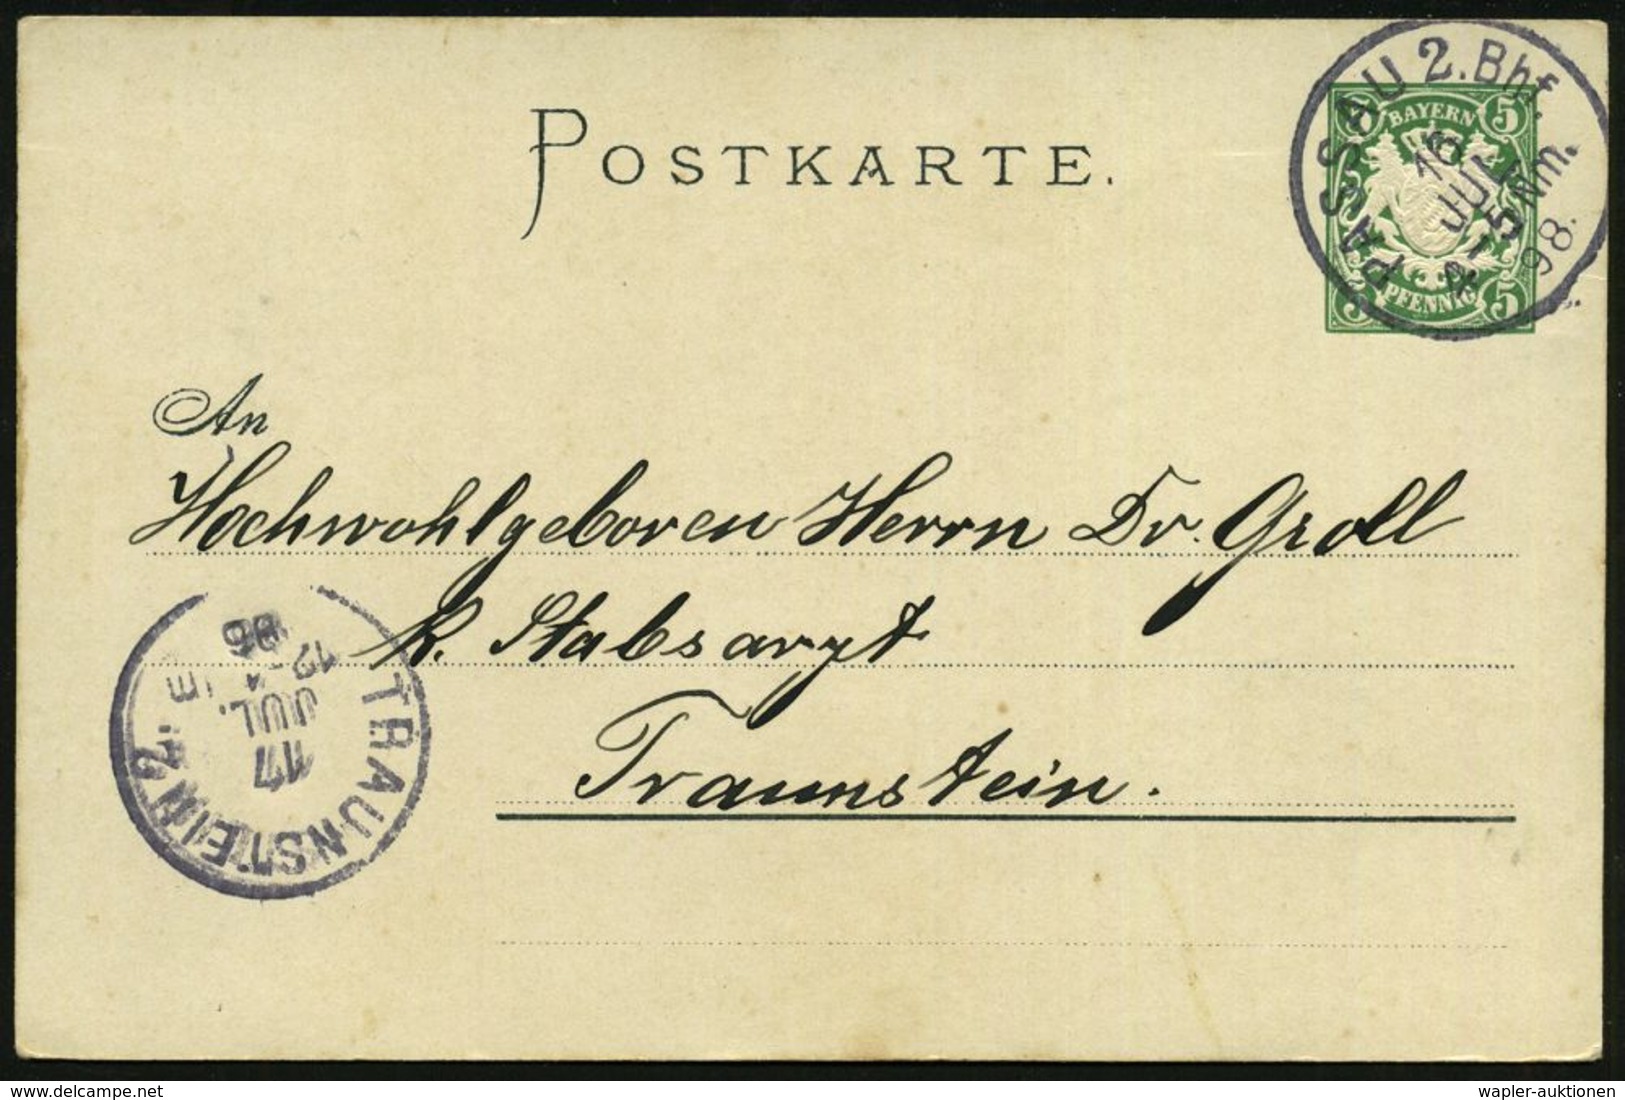 POSTKARTE.
PASSAU 2. Bhf.
16
JUL
4-5 Nm.
98.
5 BAYERN 5
5 PFENNIG 5
An
Hochwohlgeboren Herrn Dr. Groll
k. Stabsarzt
Traunstein.
TRAUNSTEIN 2
17
JUL.
12-1
98
www.delcampe.net
wapler-auktionen